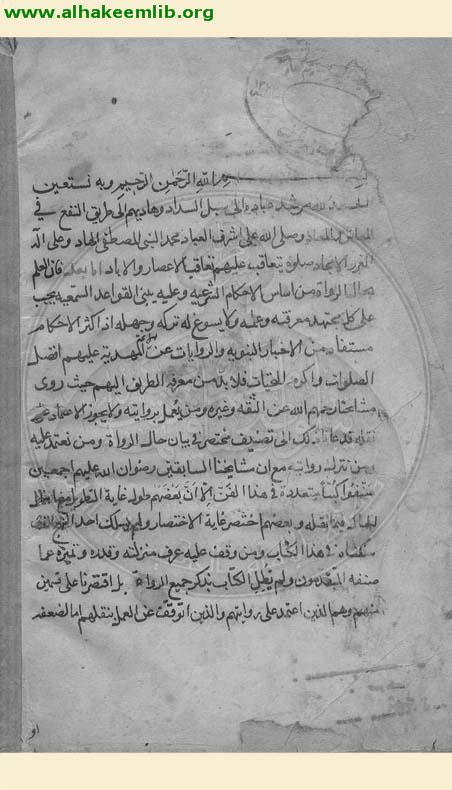 www.alhakeemlib.org
بسم الله الرحمن الرحيم وبه نستعين
الحمد لله مرشد عباده الى سبل السداد وهاديهم الى طريق النفع في
المعاش والمعاد وصلى الله على اشرف العباد محمد النبي المصطفى الهاد وعلى اله
الغرر الامجاد صلوة يتعاقب عليهم تعاقب الاعصار والاباد اما بعد فان العلم
بحال الرواة من اساس الاحكام الشرعيه وعليه يبنى القواعد السمعيه يجب
على كل مجتهد معرفته وعلمه ولا يسوغ له تركه وجهله اذ اكثر الاحكام
مستفاد من الاخبار النبويه والروايات عن الائمة المهدية عليهم افضل
الصلوات واكرم التحيات فلا بد من معرفة الطريق اليهم حيث روى
مشايخنا رحمهم الله عن الثقه وغيره ومن يعمل بروايته ولا يجوز الاعتماد على
نقله فدعانا ذلك الى تصنيف مختصر في بيان حال الرواة ومن نعتمد عليه
ومن نترك روايته مع ان مشايخنا السابقين رضوان الله عليهم اجمعين
صنفوا كتبا متعددة في هذا الفن الا ان بعضهم طول غاية التطويل مع اجمال
الحال فيما نقله وبعضهم اختصر غاية الاختصار ولم يسلك احد النهج الذى
سلكناه في هذا الكتاب ومن وقف عليه عرف منزلته وقدره وتميزه عما
صنفه المتقدمون ولم نطل الكتاب بذكر جميع الرواة بل اقتصرنا على قسمين
منهم وهم الذين اعتمد على روايتهم والذين اتوقف عن العمل بنقلهم اما لضعفه
او